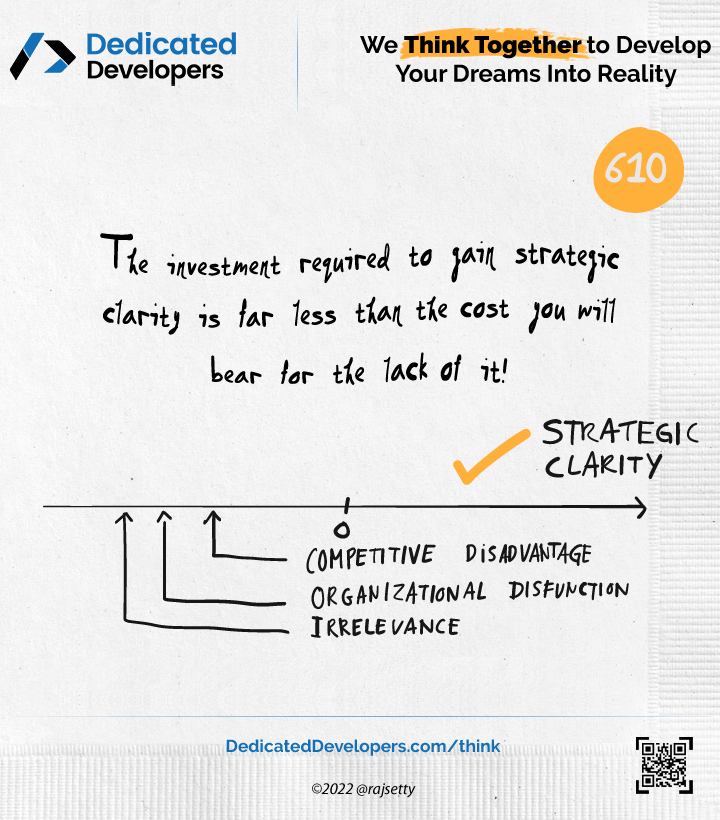 Dedicated
Developers
We Think Together to Develop
Your Dreams Into Reality
610
The investment required to gain strategic
clarity is far less than the cost you will
bear for the lack of it!
STRATEGIC
CLARITY
0
COMPETITIVE DISADVANTAGE
ORGANIZATIONAL DISFUNCTION
IRRELEVANCE
DedicatedDevelopers.com/think
©2022 @rajsetty